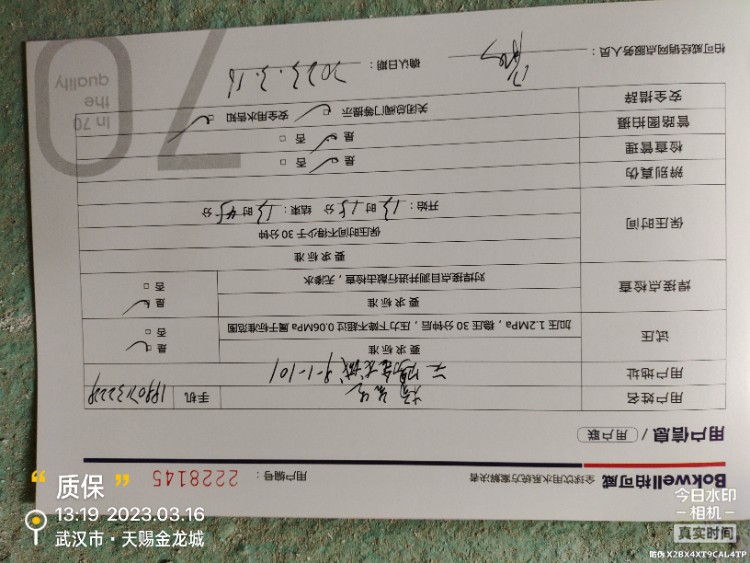 Bokwell柏可威
全球饮用水系统方案解决者
用户编号：
2228145
用户信息 / 用户联
用户姓名
手机
用户地址
天赐金龙城 9-1-101
试压
要求标准
加压1.2MPa，稳压30分钟后，压力下降不超过0.06MPa属于标准范围
是
否
焊接点检查
要求标准
对焊接点目测并进行敲击检查，无渗水
是
否
保压时间
要求标准
保压时间不得少于30分钟
开始：13时15分 结束：13时45分
辨别真伪
是 否
检查管理
是 否
管路图拍摄
安全措辞
关闭总阀门等提示 安全用水告知
柏可威经销网点服务人员：
确认日期：2023.3.16
In 70
the
quality
70
“质保”
13:19 2023.03.16
武汉市·天赐金龙城
今日水印
-相机-
真实时间
防伪 X2BX4XT9CAL4TP